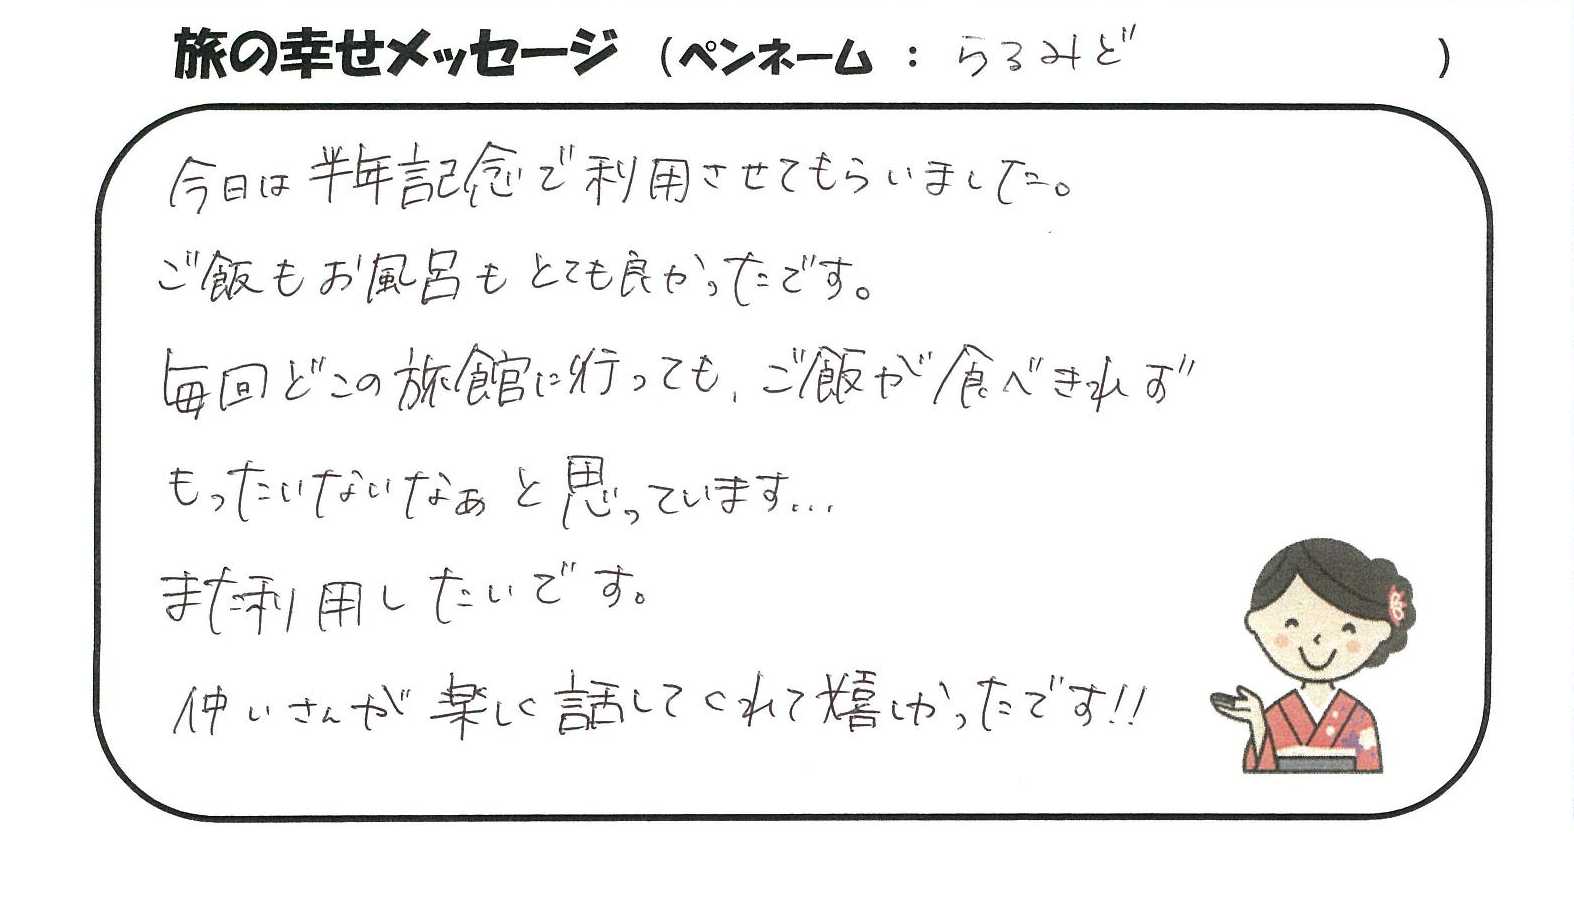 旅の幸せメッセージ (ペンネーム : らるみど )
今日は半年記念で利用させてもらいました。
ご飯もお風呂もとても良かったです。
毎回どこの旅館に行っても、ご飯が食べきれず
もったいないなぁと思っています...
また利用したいです。
仲いさんが楽しく話してくれて嬉しかったです!!